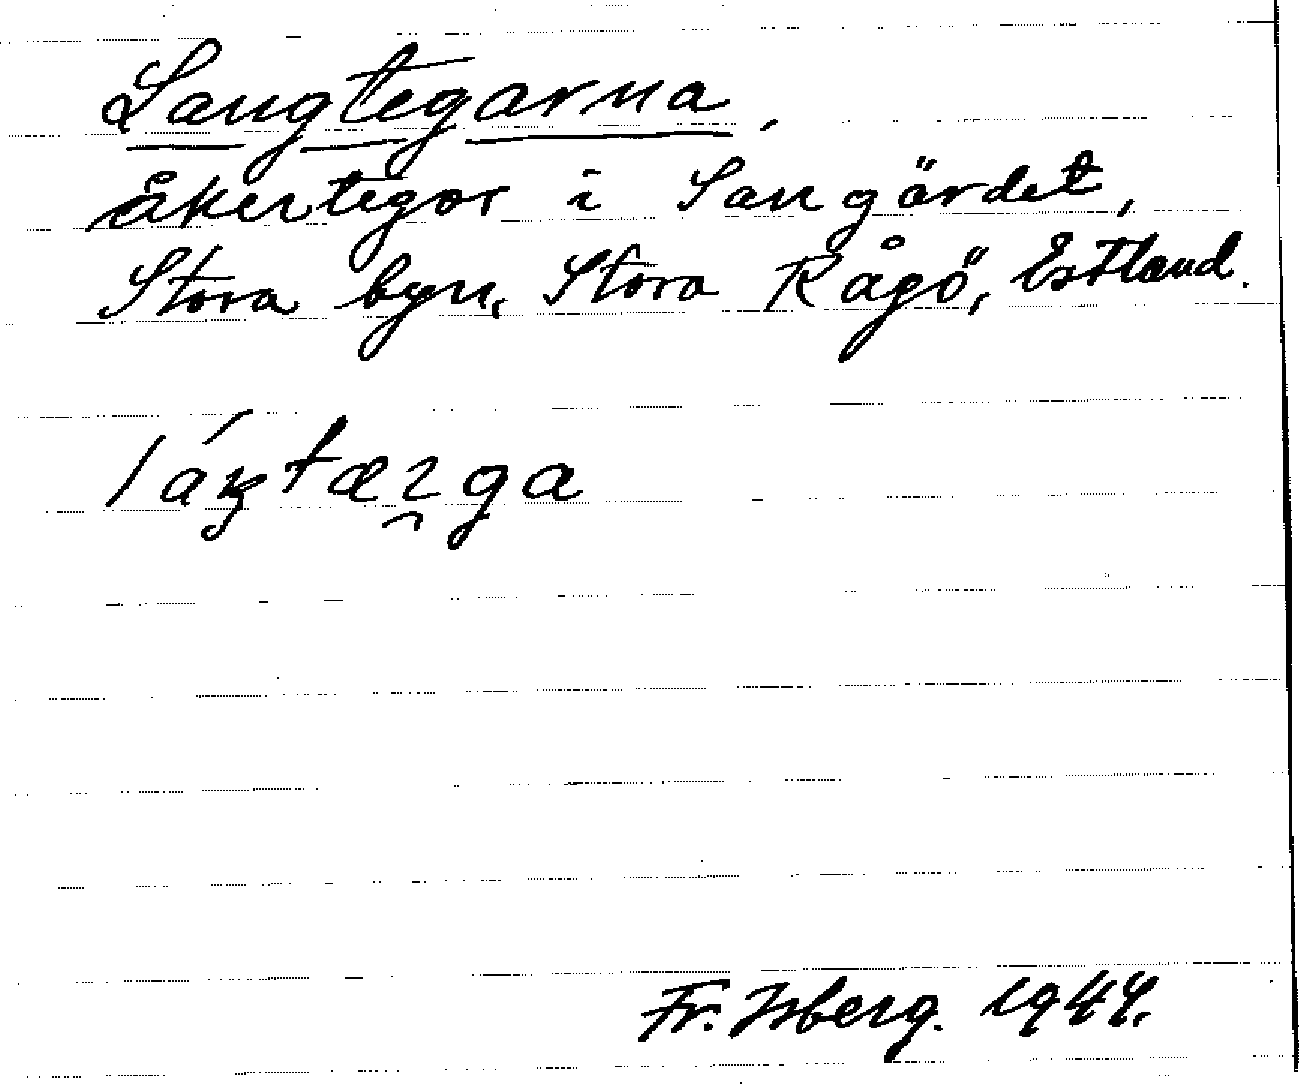 Langtegarna,
åkertegar i Sangärdet,
Stora byn, Stora Rågö, Estland.
láŋtæꝛga
Fr. Isberg. 1944.